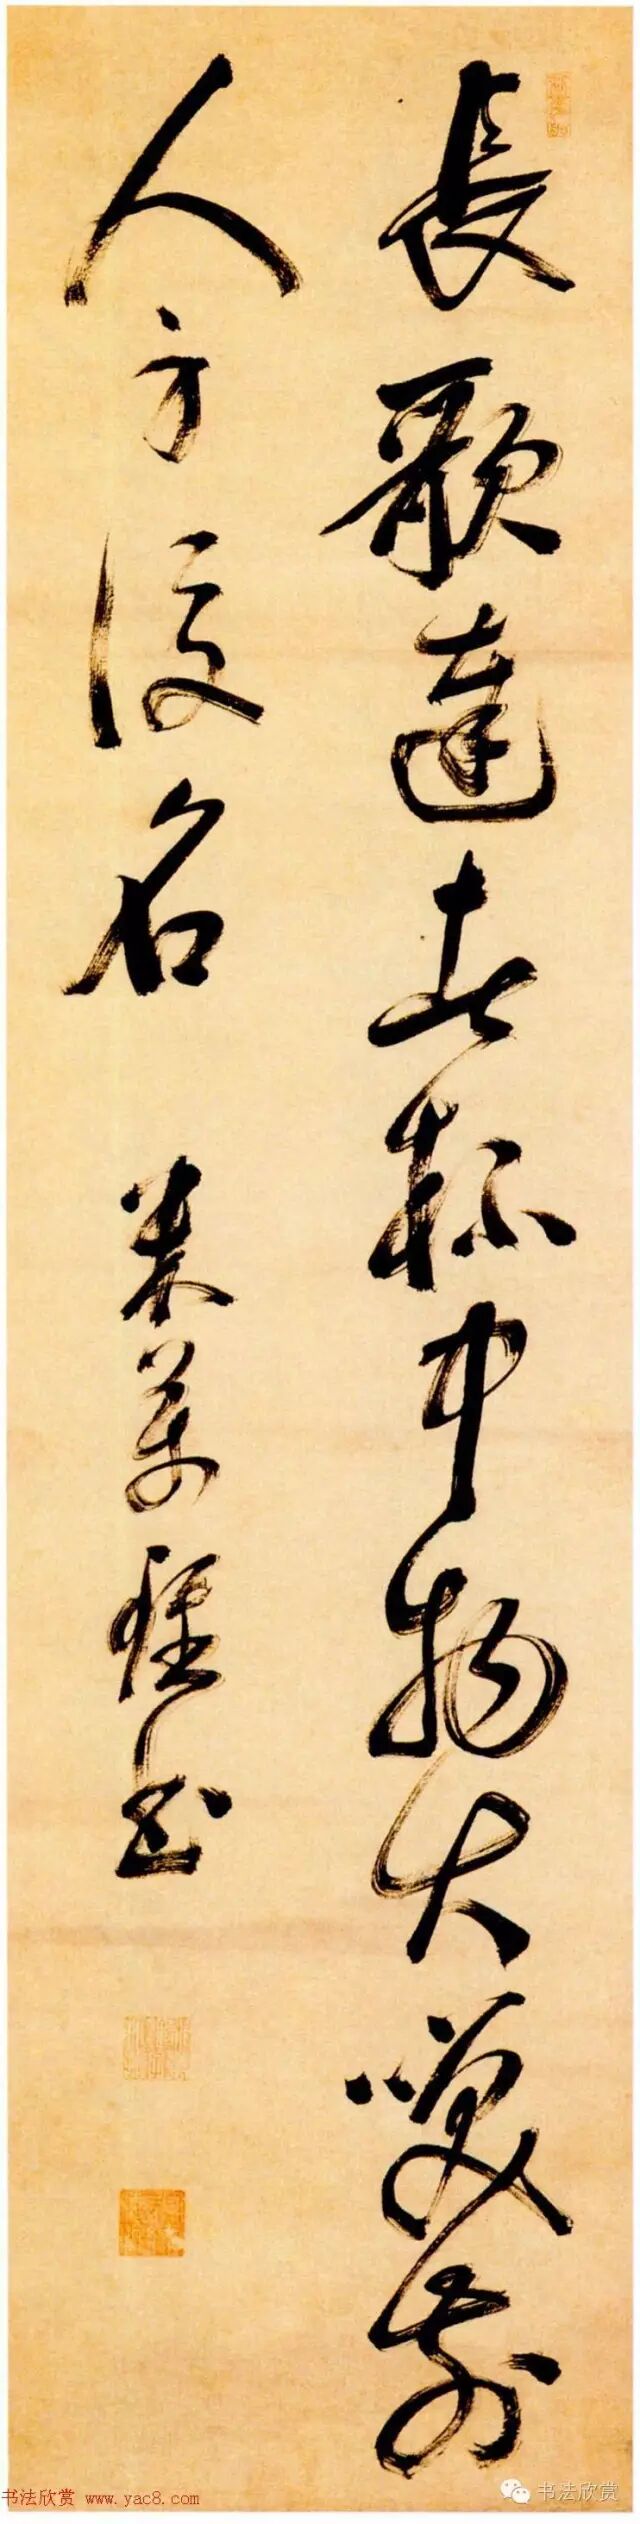 長歌達者杯中物大笑前
人身後名
米萬鍾書
书法欣赏 www.yac8.com
书法欣赏